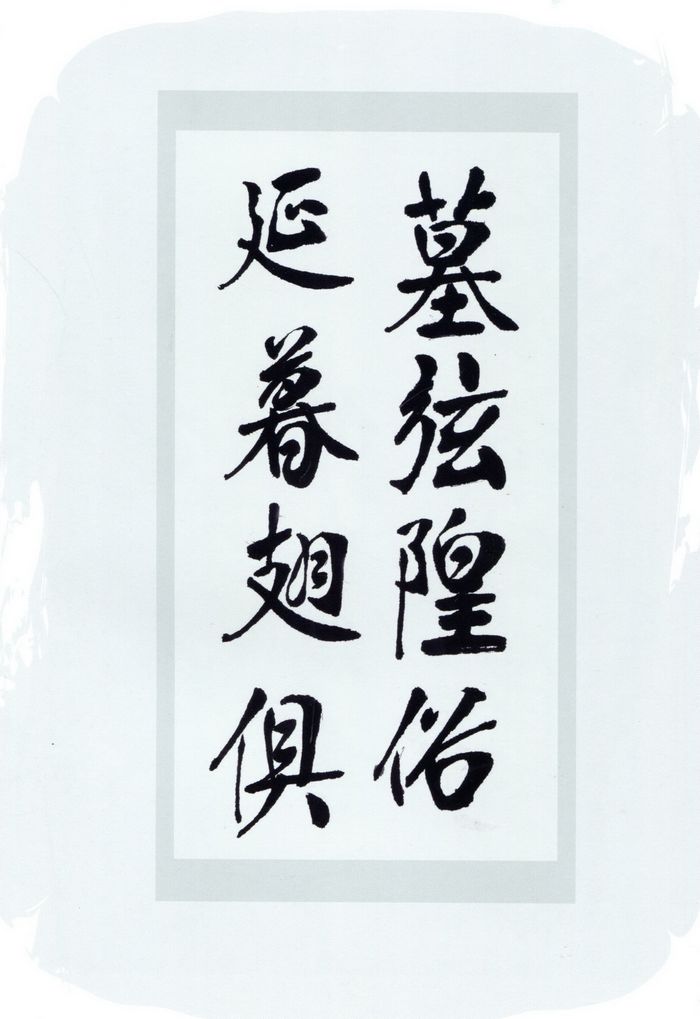 墓弦隍俗
延暮翅俱